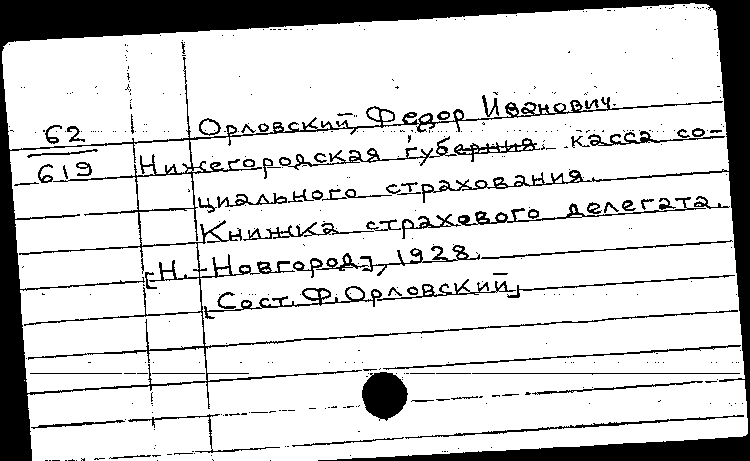 Орловский, Федор Иванович.
62
619
Нижегородская губерния. касса со-
циального страхования.
Книжка страхового делегата.
[Н.-Новгород], 1928.
[Сост. Ф. Орловский]